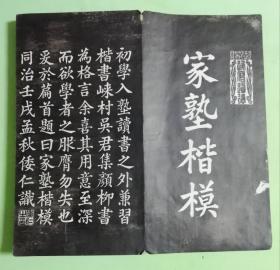 家塾楷模
初學入塾讀書之外兼習
楷書崍村吳君集顏柳書
為格言余喜其用意至深
而欲學者之服膺勿失也
爰於篇首題曰家塾楷模
同治壬戌孟秋倭仁識